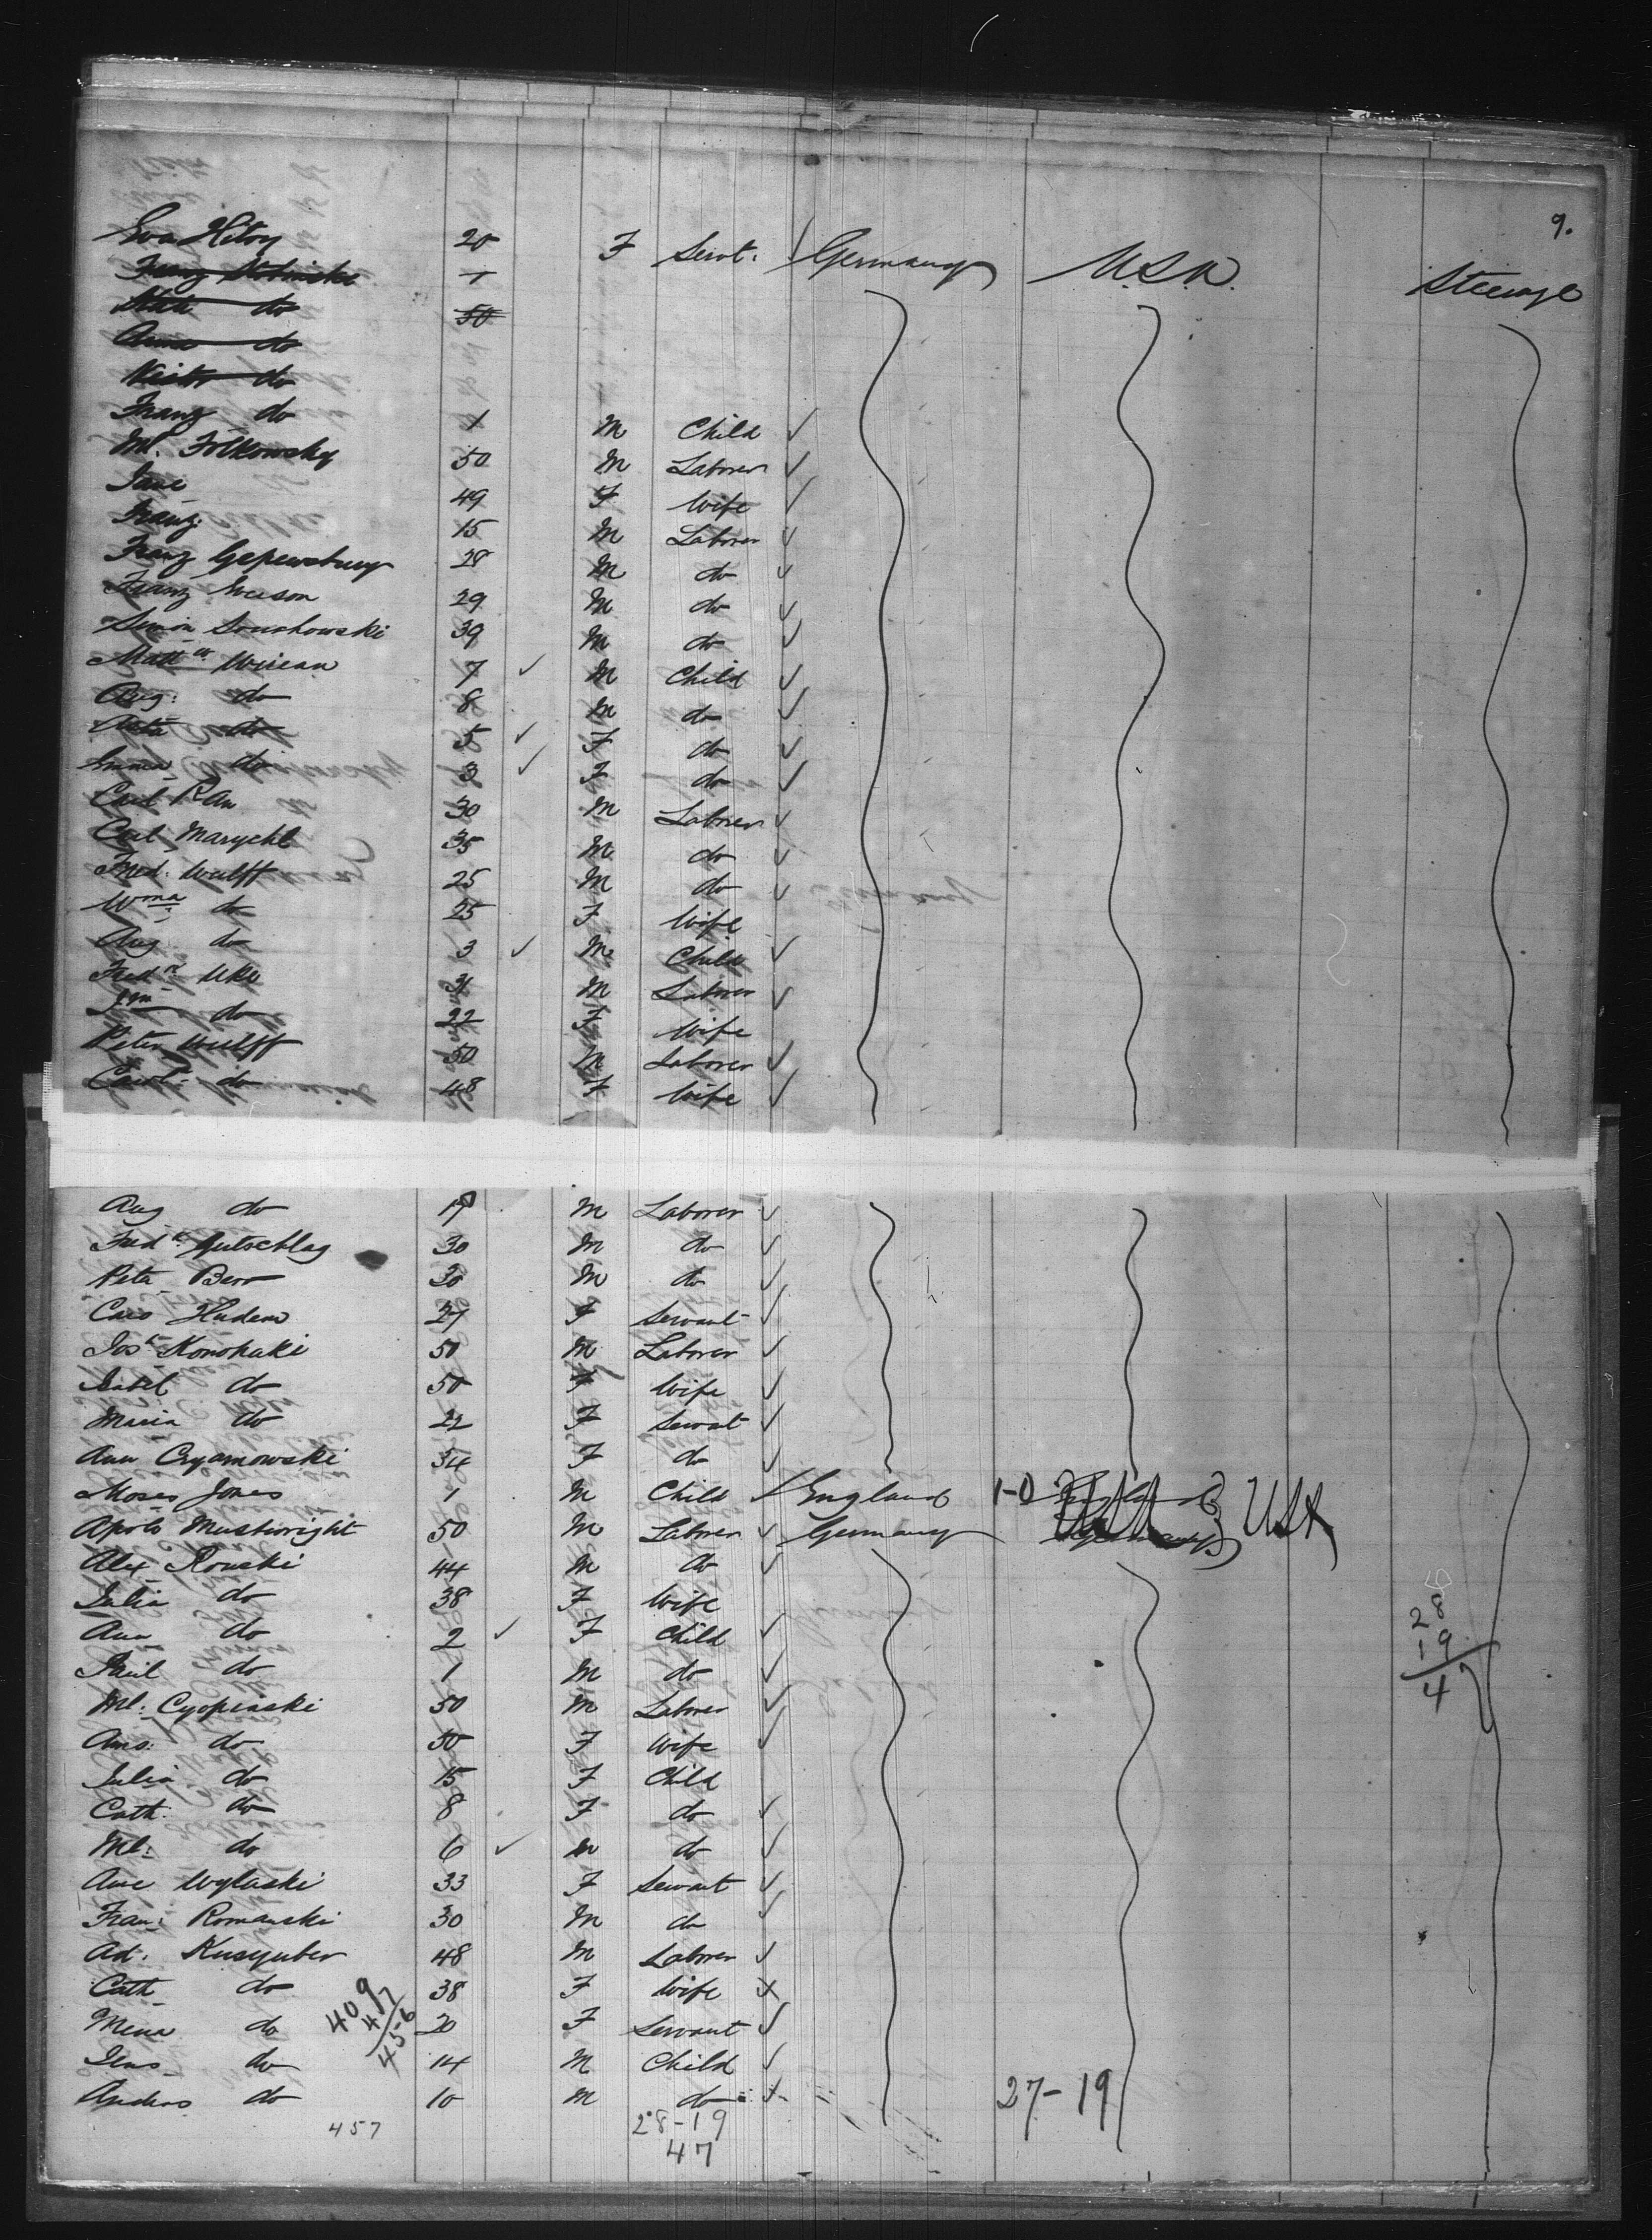 9.
Eva Hitoy 20 F Servt. Germany U.S.A. Steerage
Franz 1
do 50
Anna do
Victor do
Franz do 1 M Child
Ml. Folkowsky 50 M Laborer
Jane 49 F Wife
Franz. 15 M Laborer
Franz 28 M do
Franz 29 M do
Simon 39 M do
Matt 7 M Child
Aug: do 8 M do
do 5 F do
Emma do 3 F do
Carl Rau 30 M Laborer
Carl Marychl 35 M do
Fred. Wulff 25 M do
Wma do 25 F Wife
Aug do 3 M Child
Fredk Uke 31 M Laborer
do 22 F Wife
Peter Wulff 50 M Laborer
Carol: do 48 F Wife
Aug do M Laborer
Fredk Gutschlag 30 M do
Peter 30 M do
Caro 27 F Servant
Josh Konohaki 50 M Laborer
Isabel do 50 F Wife
Maria do 22 F Servant
Ann Czyamowski 34 F do
Moses Jones 1 M Child England 1-0
Apolo Mustwright 50 M Laborer Germany USA
Alex Rouski 44 M do
Julia do 38 F Wife
Ann do 2 F Child
Paul do 1 M do
Ml: Cyopinski 50 M Laborer
Ans: do 50 F Wife
Julia do 15 F Child
Cath. do 8 F do
Ml: do 6 M do
Ane Wylaski 33 F Servant
Fran: Romanski 30 M do
Ad: Kusyuber 48 M Laborer
Cath do 38 F Wife
Mina do 20 F Servant
Jens do 14 M Child
Anders do 10 M do
28
19
47
409
47
456
27-19
457
28-19
47